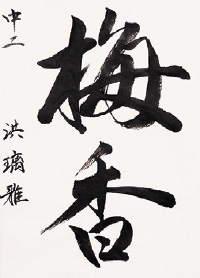 梅香
中二
洪璃雅